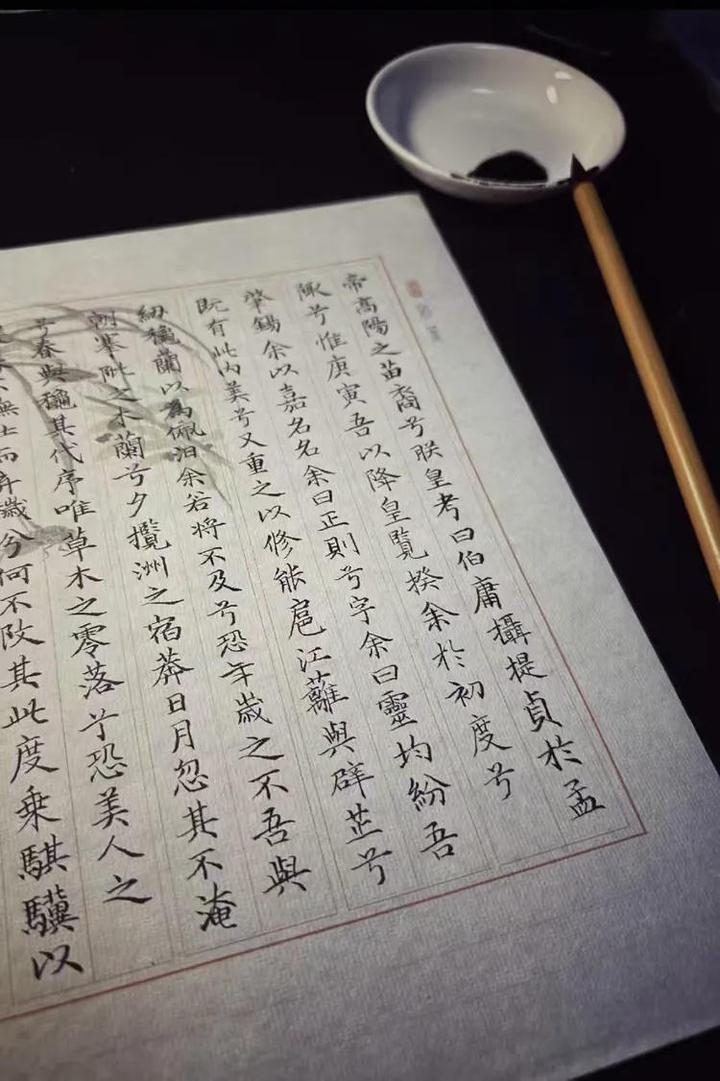 帝高陽之苗裔兮朕皇考曰伯庸攝提貞於孟
陬兮惟庚寅吾以降皇覽揆余於初度兮
肇錫余以嘉名名余曰正則兮字余曰靈均紛吾
既有此内美兮又重之以修能扈江蘺與辟芷兮
紉穐蘭以為佩汩余若將不及兮恐年歲之不吾與
朝搴阰之木蘭兮夕攬洲之宿莽日月忽其不淹
兮春與穐其代序唯草木之零落兮恐美人之
不撫壯而弃穢兮何不改其此度乗騏驥以